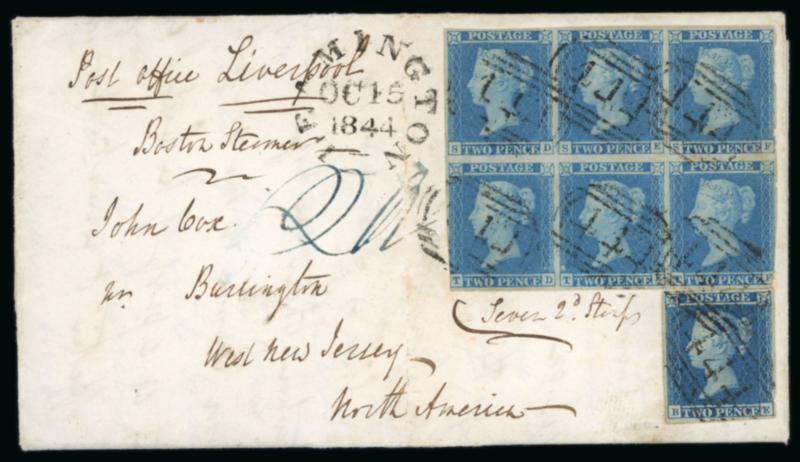 Post office Liverpool
Boston Steamer
John Cox.
nr Burlington
West New Jersey
North America
LEAMINGTON
OC 15
1844
POSTAGE POSTAGE POSTAGE
S TWO PENCE D S TWO PENCE E S TWO PENCE F
T TWO PENCE D T TWO PENCE E T TWO PENCE F
(Seven 2d Stamps
POSTAGE
B TWO PENCE E
442